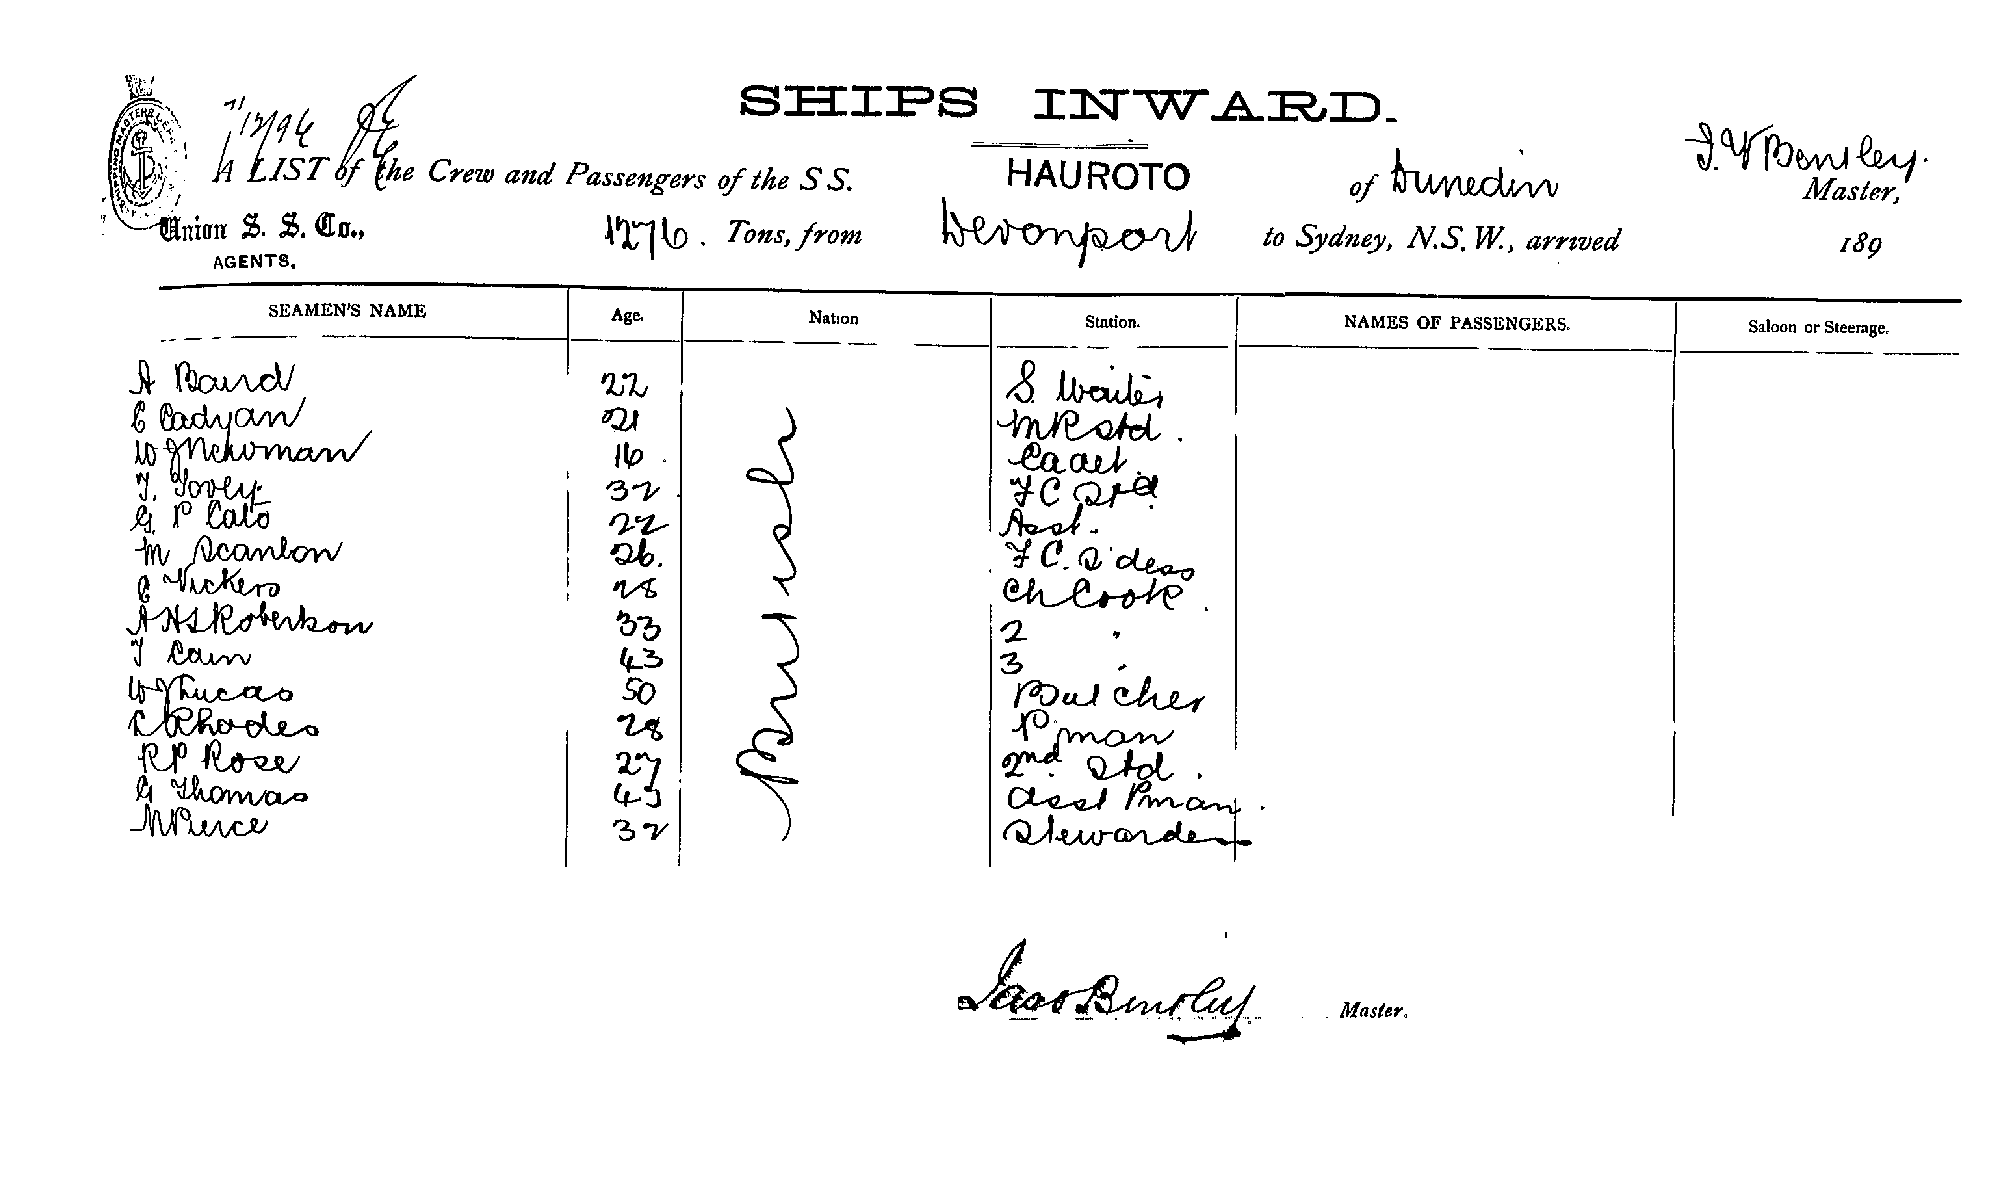 SHIPS INWARD.
7/12/96
J. W Bensley.
A LIST of the Crew and Passengers of the S S. HAUROTO of Dunedin Master,
Union S. S. Co., 1276. Tons, from Devonport to Sydney, N.S.W., arrived 189
AGENTS.
SEAMEN'S NAME Age. Nation Station. NAMES OF PASSENGERS. Saloon or Steerage.
A Baird 22 S. Waiter
C Cadyan 21 M R Std.
W J Newman 16 Cadet.
T. Tovey 32 F C Std.
G P Cato 22 Asst.
M Scanlon 26. F C. S'dess
C Vickers 28 Ch Cook.
A H S Robertson 33 2 "
T Cain 43 3 "
W J Lucas 50 Butcher
Rhodes 28 P. man
R P Rose 27 2nd Std.
G Thomas 43 Asst Pman.
M Pierce 32 Stewardess
British
Jas Bensley Master.